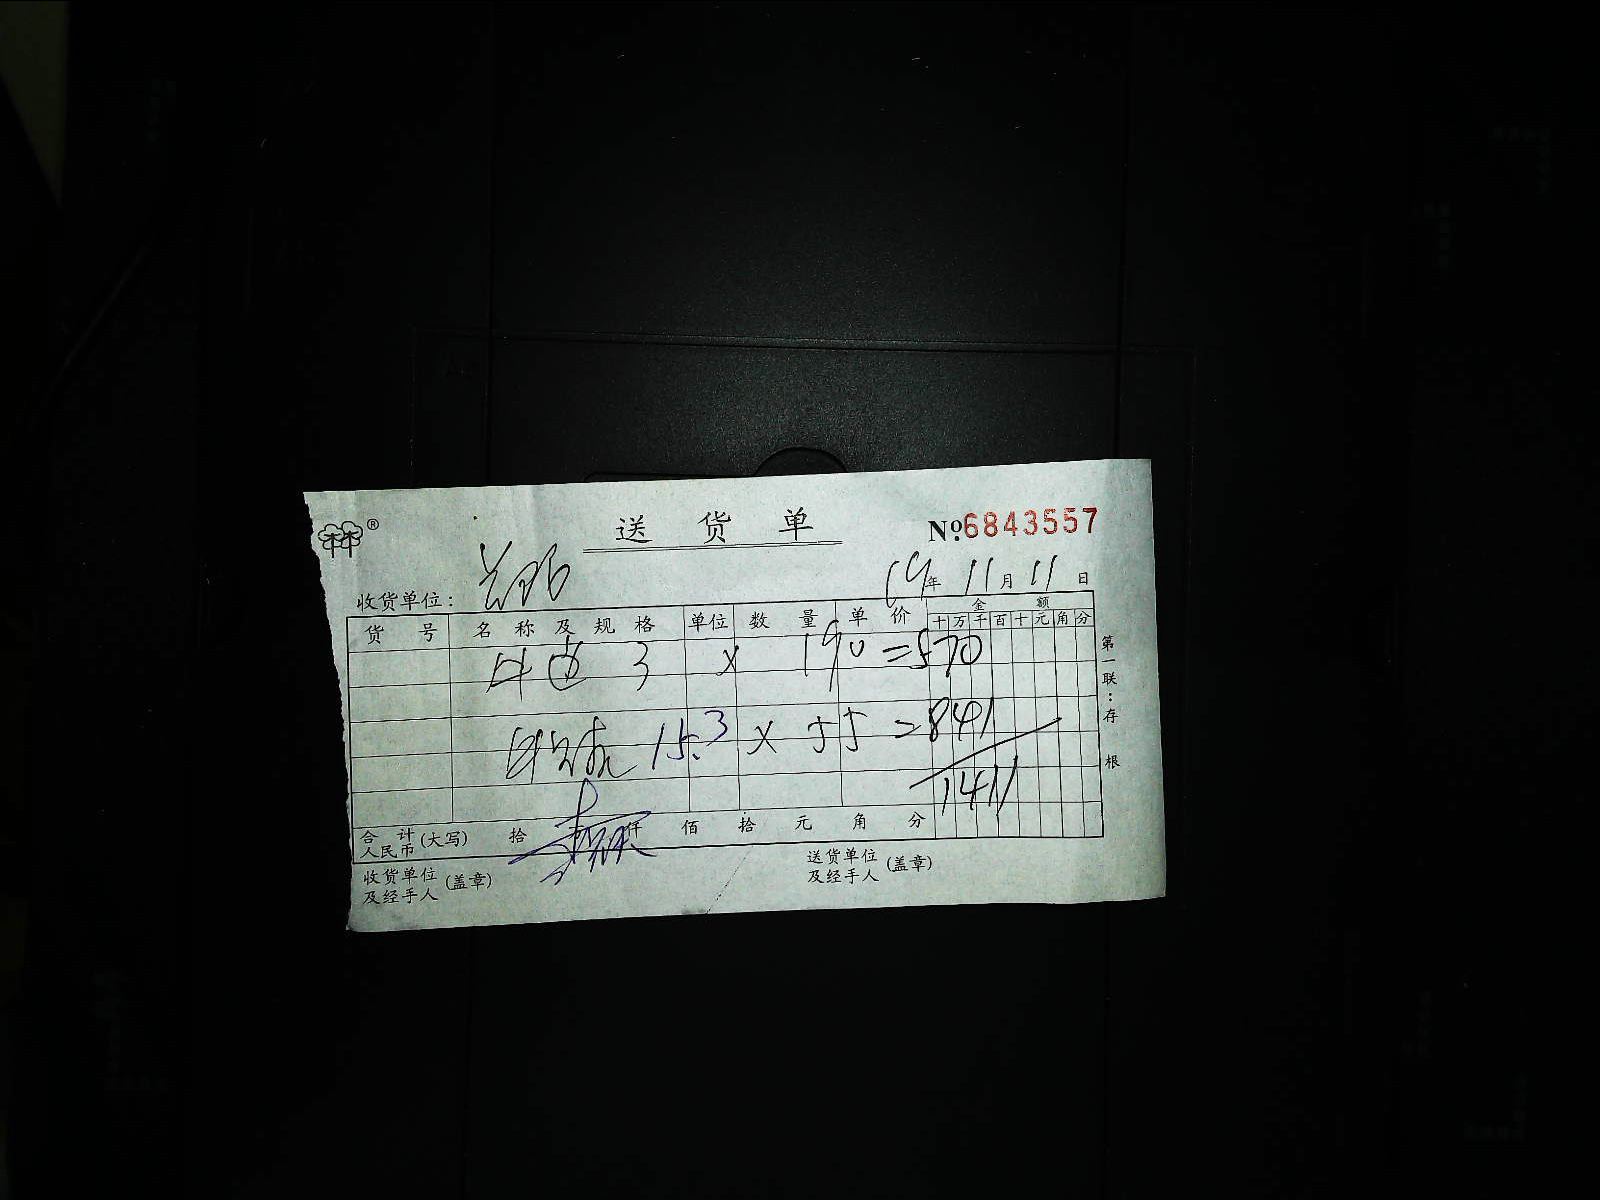 ®
送 货 单
№6843557
收货单位：
19年 11月 11日
货 号 名 称 及 规 格 单位 数 量 单 价 金 额
十 万 千 百 十 元 角 分
3 x 190 =570
15.3 x 55 =841
1411
合 计
人民币 (大写) 拾 仟 佰 拾 元 角 分
收货单位
及经手人 (盖章)
送货单位
及经手人 (盖章)
第一联：存根